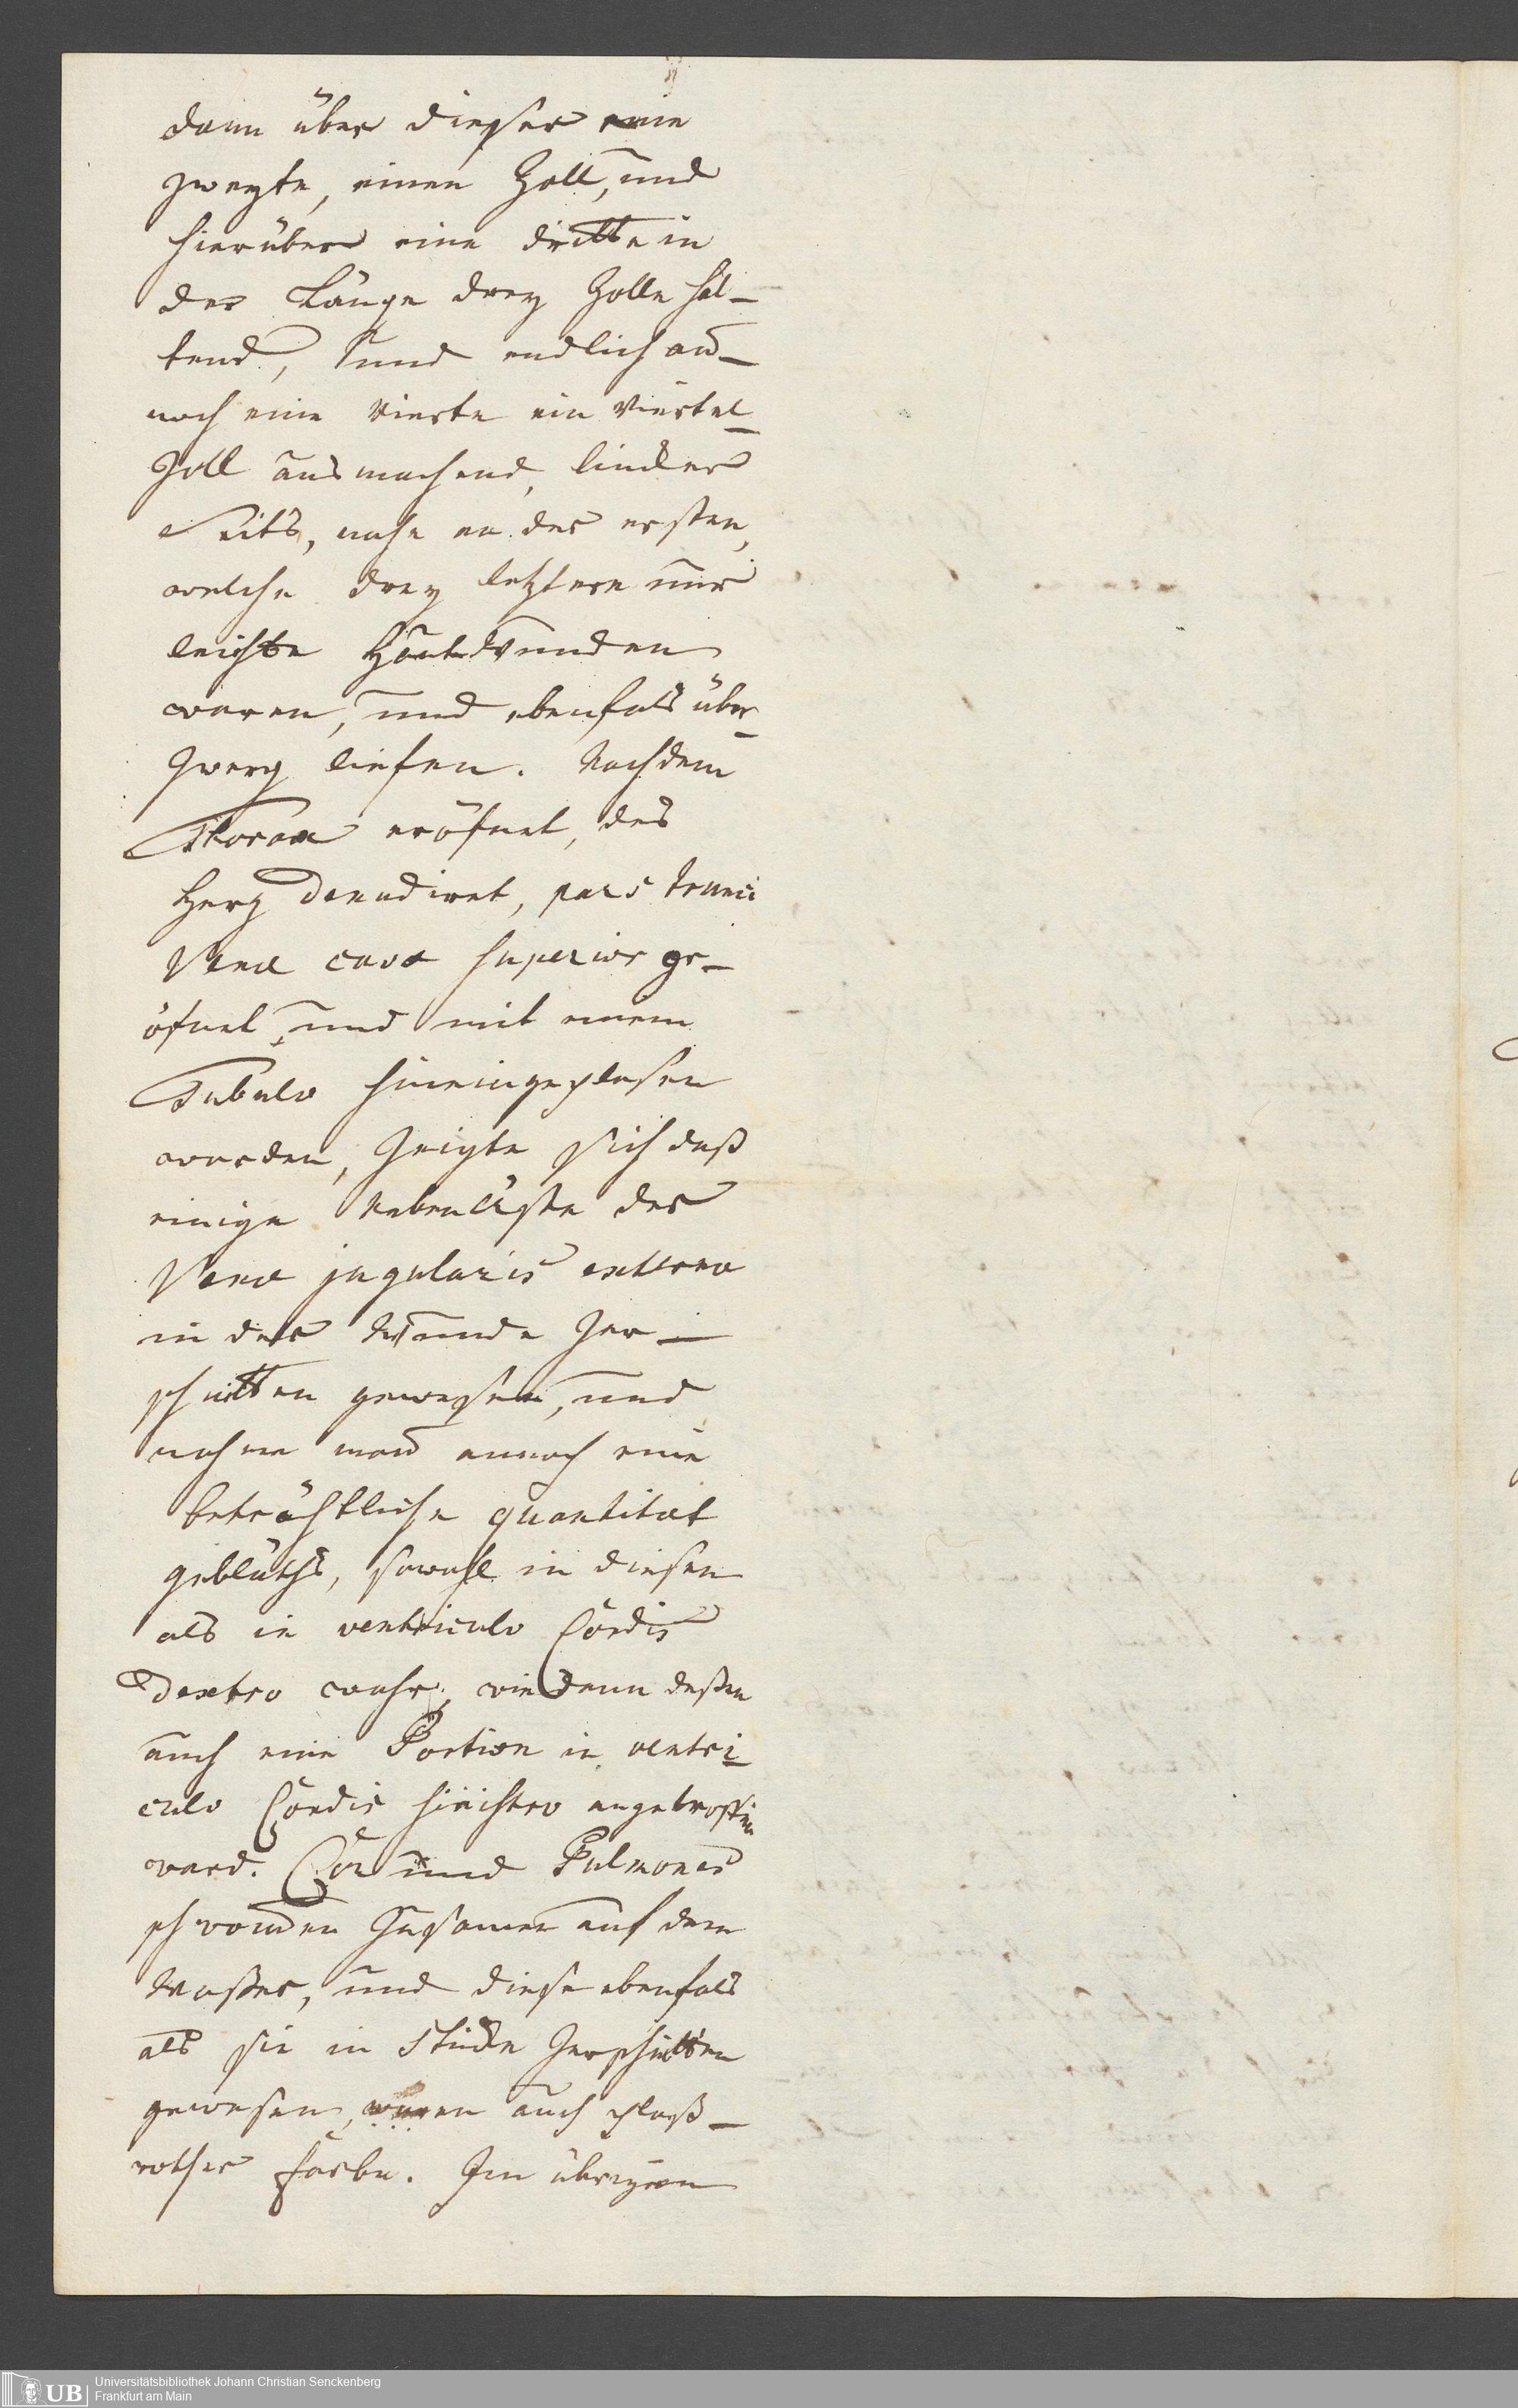 dann über dieser eine
zweyte, einen Zoll, und
hierüber eine dritte in
der Länge drey Zolle hal-
tend, und endlich an-
noch eine vierte ein viertel-
Zoll ausmachend, lincker
Seits, nahe an der ersten,
welche drey letztere nur
leichte Hautwunden
waren, und ebenfals über-
zwerg liefen. Nachdem
Thorax eröfnet, das
Herz denudiret, pars trunci
Vena cava superior ge-
öfnet, und mit einem
Tubulo hineingeplasen
worden, zeigte sich daß
einige Nebenäste der
Vena jugularis externa
in der Wunde zer-
schnitten gewesen, und
nahme man annoch eine
beträchtliche quantitæt
geblüths, sowohl in diesen
als in ventriculo Cordis
dextro wahr, wie denn deßen
auch eine Portion in ventri-
culo Cordis sinistro angetroffen
ward. Cor und Pulmones
schwommen zusamen auf dem
Waßer, und diese ebenfals
als sie in Stücke zerschnitten
gewesen, waren auch plaß-
rother Farbe. Im übrigen
UB
Universitätsbibliothek Johann Christian Senckenberg
Frankfurt am Main